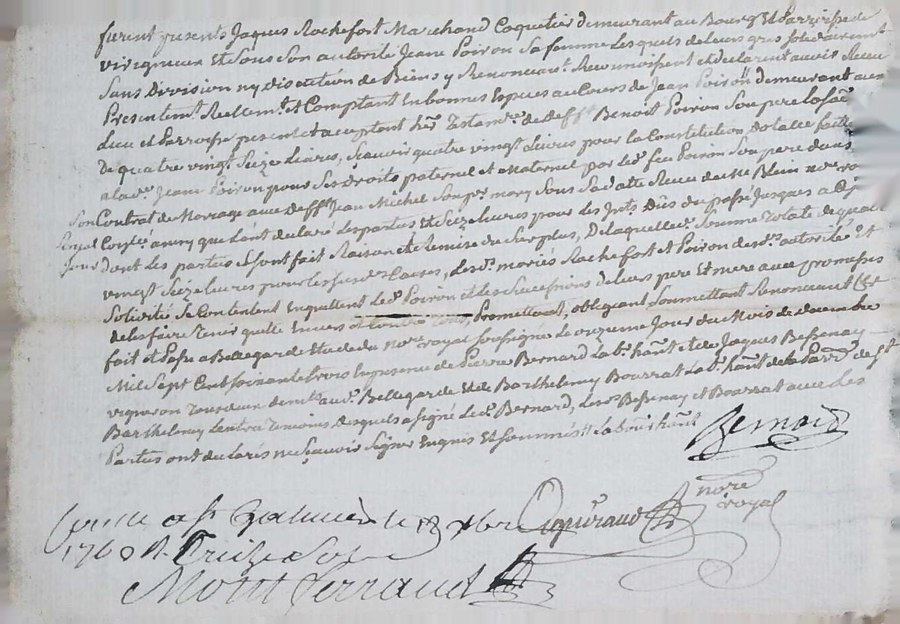 furent presents Jaques Rochefort Marchand Coquetier demeurant au Bourg Et Parroisse de
virigneux Et Sous Son autorité Jeane Poiron Sa femme Lesquels de leurs gres solidairement
Sans Division ny discution de Biens y Renonceant Reconoissent et declarent avoir Receu
Presentemt Reellemt et Comptant En bonnes Especes au Cours de Jean Poiron demeurant aux
Lieu et Parroisse present et acceptant hér Testamre de defft Benoit Poiron Son pere La
De quatre vingt Seize Livres, Scavoir quatre vingt Livres pour la Constitution Dotalle faitte
a lade Jeane Poiron pour Ses Droits paternel et Maternel par Led feu Poiron Son pere dans
Son Contrat de Mariage avec defft Jean Michel Son pr mary Sous Sa datte Receu de Me Blein nore
Royal et Seize Livres pour Les Ints Dûs du passé Jusques a Ce
jour dont Les parties Se Sont fait Raison et Remise du Surplus, De laquelle Somme Totale de quatre
vingt Seize Livres pour les Causes, Les mariés Rochefort et Poiron de autorité Et
Solidité Se Contentent En quittent Led Poiron et les Successions de Leurs pere Et mere avec promesses
de les faire Tenir quitte Envers et Contre Tous, Promettant, obligeant Soumettant Renonceant
fait et Passé a Bellegarde Etude du Nore royal Soussigné Le onzieme Jour du Mois de decembre
Mil Sept Cent Soixante Trois En presence de Pierre Bernard Labr hant et de Jaques Bessenay
vigneron Tous deux audt Bellegarde Et de Barthelemy Bourrat Labr hant de la Parroisse de St
Barthelemy Temoins Desquels a signé Led Bernard, Les Bessenay et Bourrat avec Les
Parties ont declarés ne Scavoir Signer Enquis Et Sommés
Bernard
nore
royal
a St Galmier le 13 xbre
1763 R. Treize Sols
Montferrand